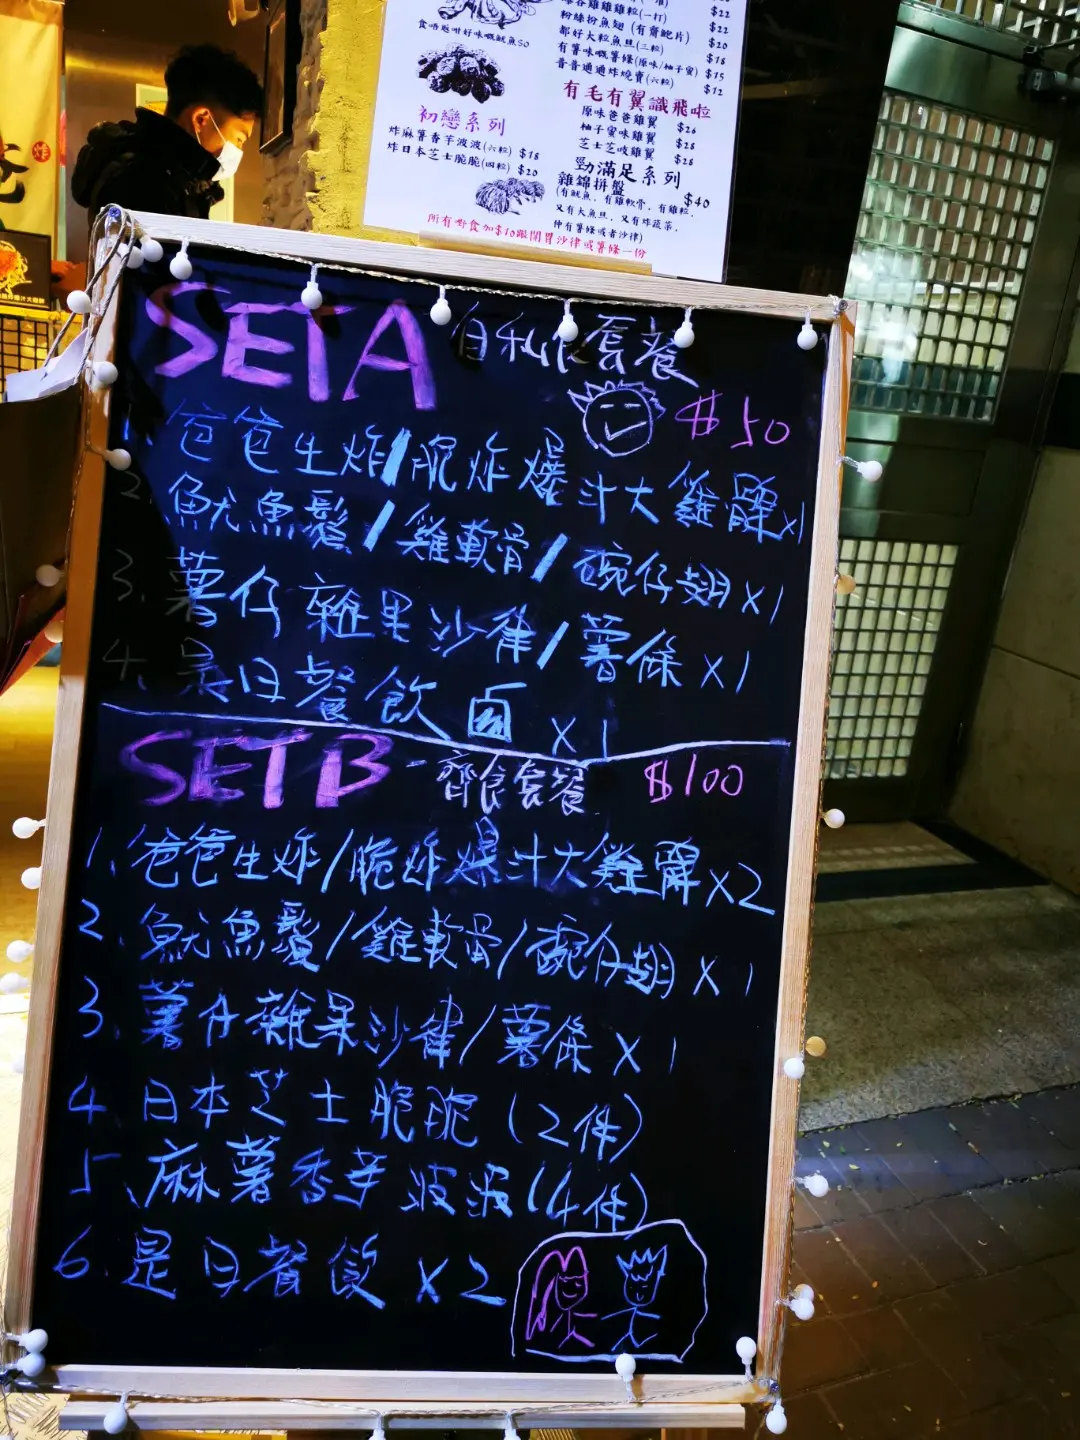 $22
雞雞粒(一打) $22
粉絲扮魚翅(有齋鮑片) $22
都好大粒魚旦(三粒) $20
有薯味嘅薯條(原味/柚子蜜) $18
$15
普普通通炸燒賣(六粒) $12
食唔返咁好味嘅魷魚SO
初戀系列
炸麻薯香芋波波(六粒) $18
炸日本芝士脆脆(四粒) $20
有毛有翼識飛啦
原味爸爸雞翼 $26
柚子蜜味雞翼 $28
芝士芝味雞翼 $28
勁滿足系列
雜錦拼盤 $40
(有魷魚, 有雞軟骨, 有雞粒,
又有大魚旦, 又有炸蔬菜,
仲有薯條或者沙律)
所有嘢食加$10跟開胃沙律或薯條一份
炸
SET A 自私食套餐
$50
1. 爸爸生炸/脆炸爆汁大雞髀x1
2. 魷魚鬚/雞軟骨/碗仔翅x1
3. 薯仔雜果沙律/薯條x1
4. 是日餐飲 x1
SET B - 齊食套餐 $100
1. 爸爸生炸/脆炸爆汁大雞髀x2
2. 魷魚鬚/雞軟骨/碗仔翅x1
3. 薯仔雜果沙律/薯條x1
4. 日本芝士脆脆(2件)
5. 麻薯香芋波波(4件)
6. 是日餐飲x2